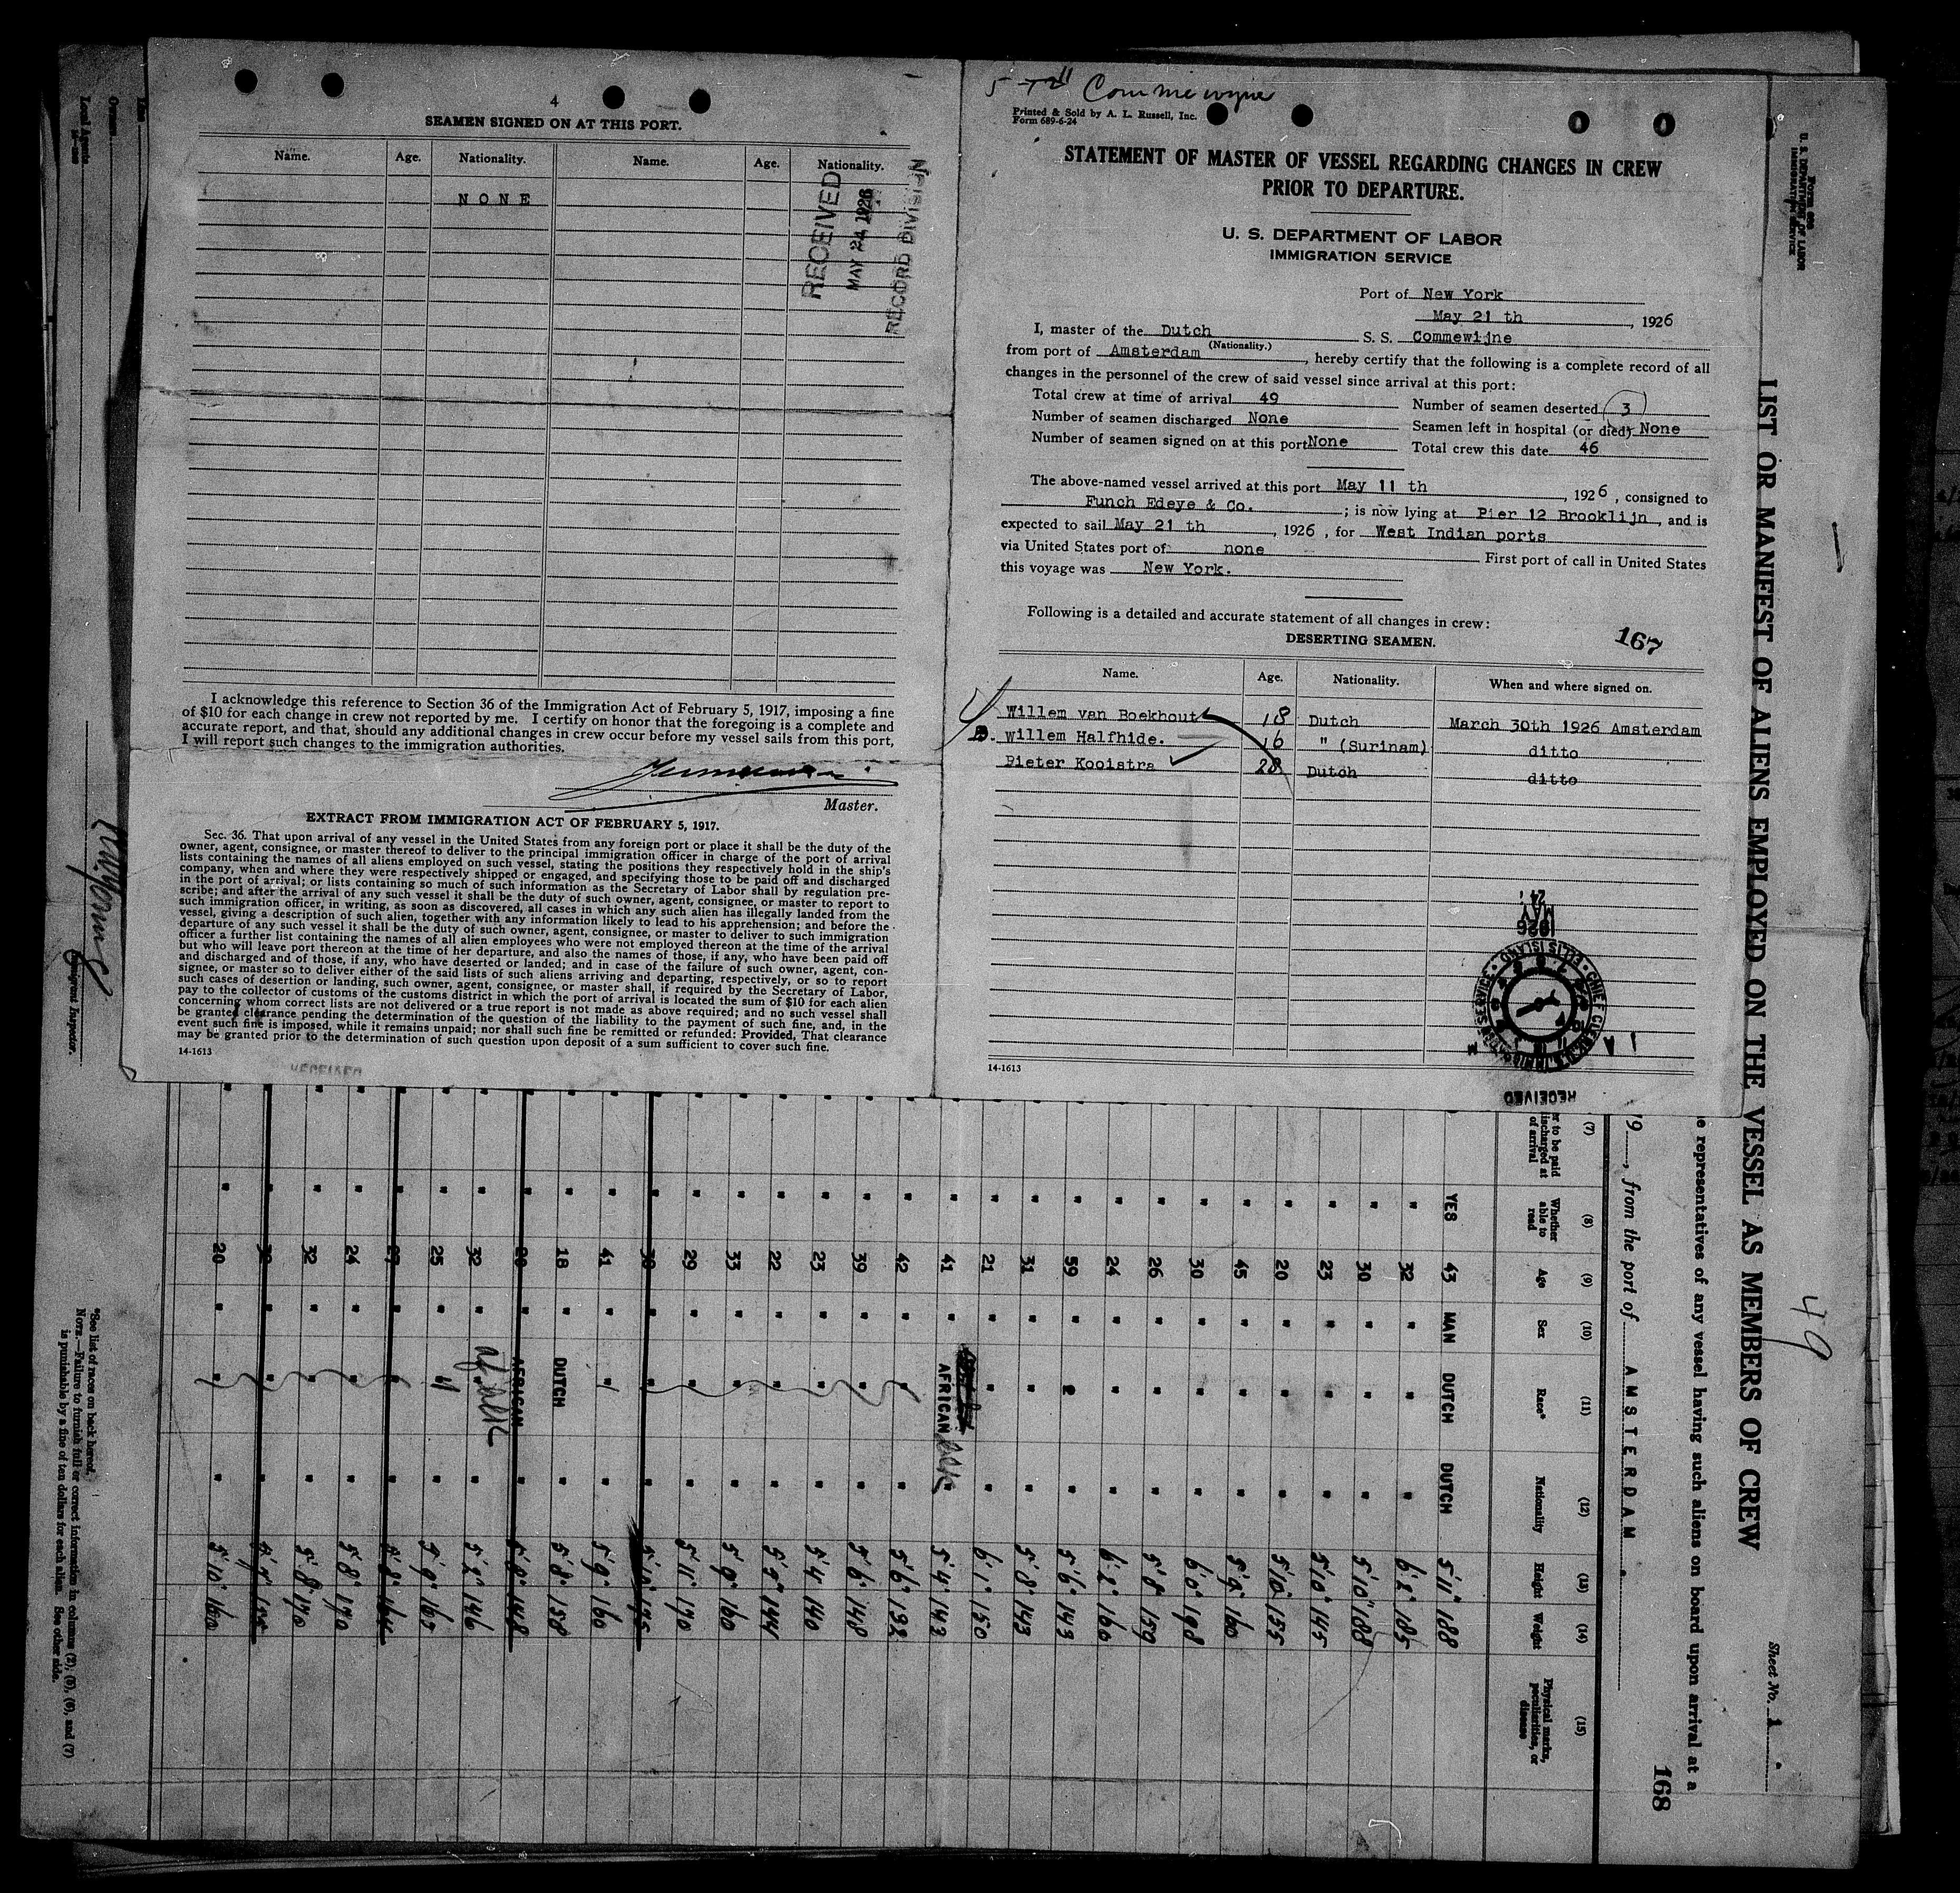 4
SEAMEN SIGNED ON AT THIS PORT.
Name. Age. Nationality. Name. Age. Nationality.
NONE
RECEIVED
MAY 24 1926
RECORD DIVISION
I acknowledge this reference to Section 36 of the Immigration Act of February 5, 1917, imposing a fine
of $10 for each change in crew not reported by me. I certify on honor that the foregoing is a complete and
accurate report, and that, should any additional changes in crew occur before my vessel sails from this port,
I will report such changes to the immigration authorities.
Master.
EXTRACT FROM IMMIGRATION ACT OF FEBRUARY 5, 1917.
Sec. 36. That upon arrival of any vessel in the United States from any foreign port or place it shall be the duty of the
owner, agent, consignee, or master thereof to deliver to the principal immigration officer in charge of the port of arrival
lists containing the names of all aliens employed on such vessel, stating the positions they respectively hold in the ship's
company, when and where they were respectively shipped or engaged, and specifying those to be paid off and discharged
in the port of arrival; or lists containing so much of such information as the Secretary of Labor shall by regulation pre-
scribe; and after the arrival of any such vessel it shall be the duty of such owner, agent, consignee, or master to report to
such immigration officer, in writing, as soon as discovered, all cases in which any such alien has illegally landed from the
vessel, giving a description of such alien, together with any information likely to lead to his apprehension; and before the
departure of any such vessel it shall be the duty of such owner, agent, consignee, or master to deliver to such immigration
officer a further list containing the names of all alien employees who were not employed thereon at the time of the arrival
but who will leave port thereon at the time of her departure, and also the names of those, if any, who have been paid off
and discharged and of those, if any, who have deserted or landed; and in case of the failure of such owner, agent, con-
signee, or master so to deliver either of the said lists of such aliens arriving and departing, respectively, or so to report
such cases of desertion or landing, such owner, agent, consignee, or master shall, if required by the Secretary of Labor,
pay to the collector of customs of the customs district in which the port of arrival is located the sum of $10 for each alien
concerning whom correct lists are not delivered or a true report is not made as above required; and no such vessel shall
be granted clearance pending the determination of the question of the liability to the payment of such fine, and, in the
event such fine is imposed, while it remains unpaid; nor shall such fine be remitted or refunded: Provided, That clearance
may be granted prior to the determination of such question upon deposit of a sum sufficient to cover such fine.
14-1613
RECEIVED
Commewyne
Printed & Sold by A. L. Russell, Inc.
Form 689-6-24
STATEMENT OF MASTER OF VESSEL REGARDING CHANGES IN CREW
PRIOR TO DEPARTURE.
U. S. DEPARTMENT OF LABOR
IMMIGRATION SERVICE
Port of New York
May 21 th, 1926
I, master of the Dutch S. S. Commewijne
(Nationality.)
from port of Amsterdam, hereby certify that the following is a complete record of all
changes in the personnel of the crew of said vessel since arrival at this port:
Total crew at time of arrival 49 Number of seamen deserted 3
Number of seamen discharged None Seamen left in hospital (or died) None
Number of seamen signed on at this port None Total crew this date 46
The above-named vessel arrived at this port May 11 th, 1926, consigned to
Funch Edeye & Co.; is now lying at Pier 12 Brooklijn, and is
expected to sail May 21 th, 1926, for West Indian ports
via United States port of none First port of call in United States
this voyage was New York.
Following is a detailed and accurate statement of all changes in crew:
167
DESERTING SEAMEN.
Name. Age. Nationality. When and where signed on.
Willem van Boekhout 18 Dutch March 30th 1926 Amsterdam
D. Willem Halfhide. 16 " (Surinam) ditto
Pieter Kooistra 28 Dutch ditto
1926
MAY
24
ELLIS ISLAND
CHIEF CLERK
RECEIVED
14-1613
U. S. DEPARTMENT OF LABOR
IMMIGRATION SERVICE
LIST OR MANIFEST OF ALIENS EMPLOYED ON THE VESSEL AS MEMBERS OF CREW
49
Sheet No. 1
168
e representatives of any vessel having such aliens on board upon arrival at a
19, from the port of AMSTERDAM.
(7) (8) (9) (10) (11) (12) (13) (14) (15)
r to be paid
discharged at
of arrival
Whether able to read
Age
Sex
Race*
Nationality
Height
Weight
Physical marks, peculiarities, or disease
YES 43 MAN DUTCH DUTCH 5'11" 188
" 32 " " " 6'2" 185
" 30 " " " 5'10" 188
" 23 " " " 5'10" 145
" 20 " " " 5'10" 155
" 45 " " " 5'9" 160
" 30 " " " 6'0" 198
" 26 " " " 5'8" 159
" 24 " " " 6'2" 160
" 59 " " " 5'6" 143
" 31 " " " 5'8" 143
" 21 " " " 6'1" 150
" 41 " AFRICAN blk " 5'4" 143
" 42 " " " 5'6" 132
" 39 " " " 5'6" 148
" 23 " " " 5'4" 140
" 22 " " " 5'5" 144
" 33 " " " 5'9" 160
" 29 " " " 5'11" 170
" 38 " " " 5'10" 175
" 41 " " " 5'9" 160
" 18 " DUTCH " 5'8" 158
" AFRICAN " 5'8" 148
" 32 " af. blk " 5'2" 146
" 25 " " " 5'9" 167
" 27 " " " 5'8"
" 24 " " " 5'8" 170
" 32 " " " 5'8" 170
" " " "
" 20 " " " 5'10" 160
*See list of races on back hereof.
NOTE.—Failure to furnish full or correct information in columns (2), (5), (6), and (7)
is punishable by a fine of ten dollars for each alien. See other side.
Immigrant Inspector.
Local Agents
Owners